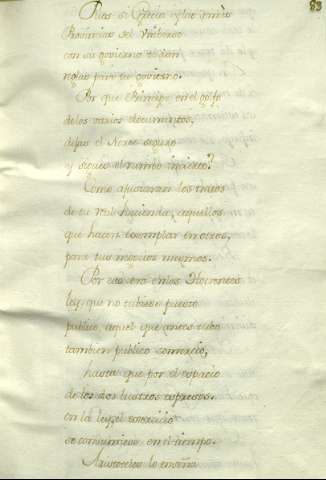 83
Pues si Grecia
Provincias del Universo
con su govierno te dan
reglas para tu govierno.
Por que Principe en el golfo
de los varios documentos,
dejas el Norte seguro
y sigues el rumbo incierto?
Como ajustaran los tratos
de tu real hazienda, aquellos
que hacen exemplar en otros,
para sus negocios mesmos.
Por eso era en los
ley, que no tubiese puesto
publico, aquel que antes tubo
tambien publico comercio,
hasta que por el espacio
de los dos lustros expresos.
en la ley, el exercicio
se consumiese en el tiempo.
Aristoteles lo enseña